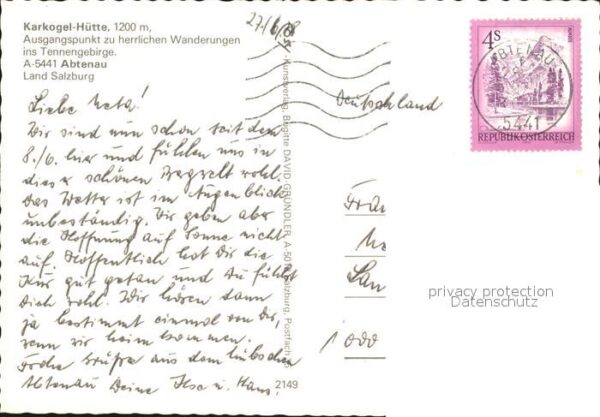 Karkogel-Hütte, 1200 m,
Ausgangspunkt zu herrlichen Wanderungen
ins Tennengebirge.
A-5441 Abtenau
Land Salzburg
Liebe Meta!
Wir sind nun schon seit dem
8./6. hier und fühlen uns in
dieser schönen Bergwelt wohl.
Das Wetter ist im Augenblick
unbeständig. Wir geben aber
die Hoffnung auf Sonne nicht
auf. Hoffentlich hat Dir die
Kur gut getan und Du fühlst
Dich wohl. Wir hören dann
ja bestimmt einmal von Dir,
wenn wir heim kommen.
Frohe Grüße aus dem hübschen
Abtenau Deine Ilse u. Hans.
2149
Kunstverlag Brigitte DAVID-GRÜNDLER, A-50 Salzburg, Postfach
27/6
Deutschland
4 S
REPUBLIK ÖSTERREICH
ABTENAU
5441
Frau
1000
privacy protection
Datenschutz